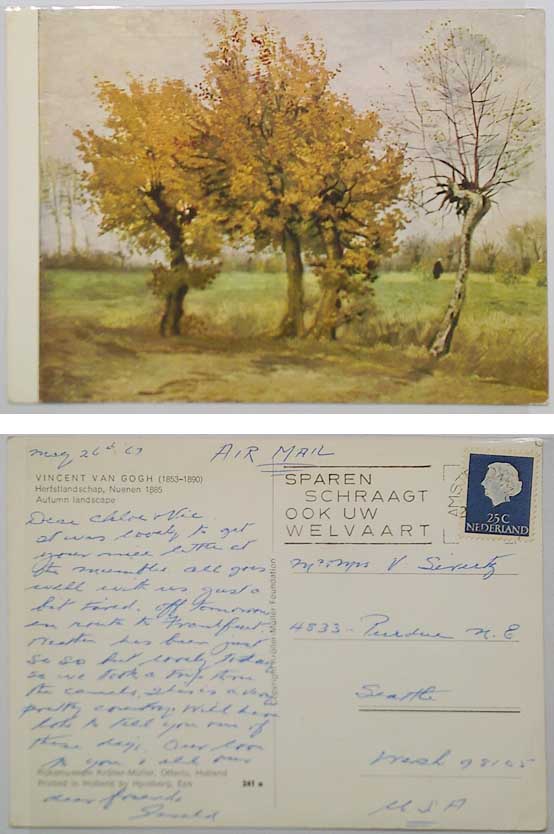 may 26th 67
AIR MAIL
VINCENT VAN GOGH (1853–1890)
Herfstlandschap, Nuenen 1885
Autumn landscape
SPAREN
SCHRAAGT
OOK UW
WELVAART
AMST
25C
NEDERLAND
Dear Chloe & Vic.
It was lovely to get
your nice letter at
the . all goes
well with us just a
bit tired. off tomorrow
en route to Frankfurt.
Weather has been just
so so but lovely today
so we took a trip thru
the canals. This is a very
pretty country. Will have
lots to tell you one of
these days. Our love
to you & all our
dear friends
Copyright Kröller-Müller Foundation
Rijksmuseum Kröller-Müller, Otterlo, Holland
Printed in Holland by Hornberg, Epe
241 e
V
4833 - Purdue N.E
Seattle
Wash 98105
USA